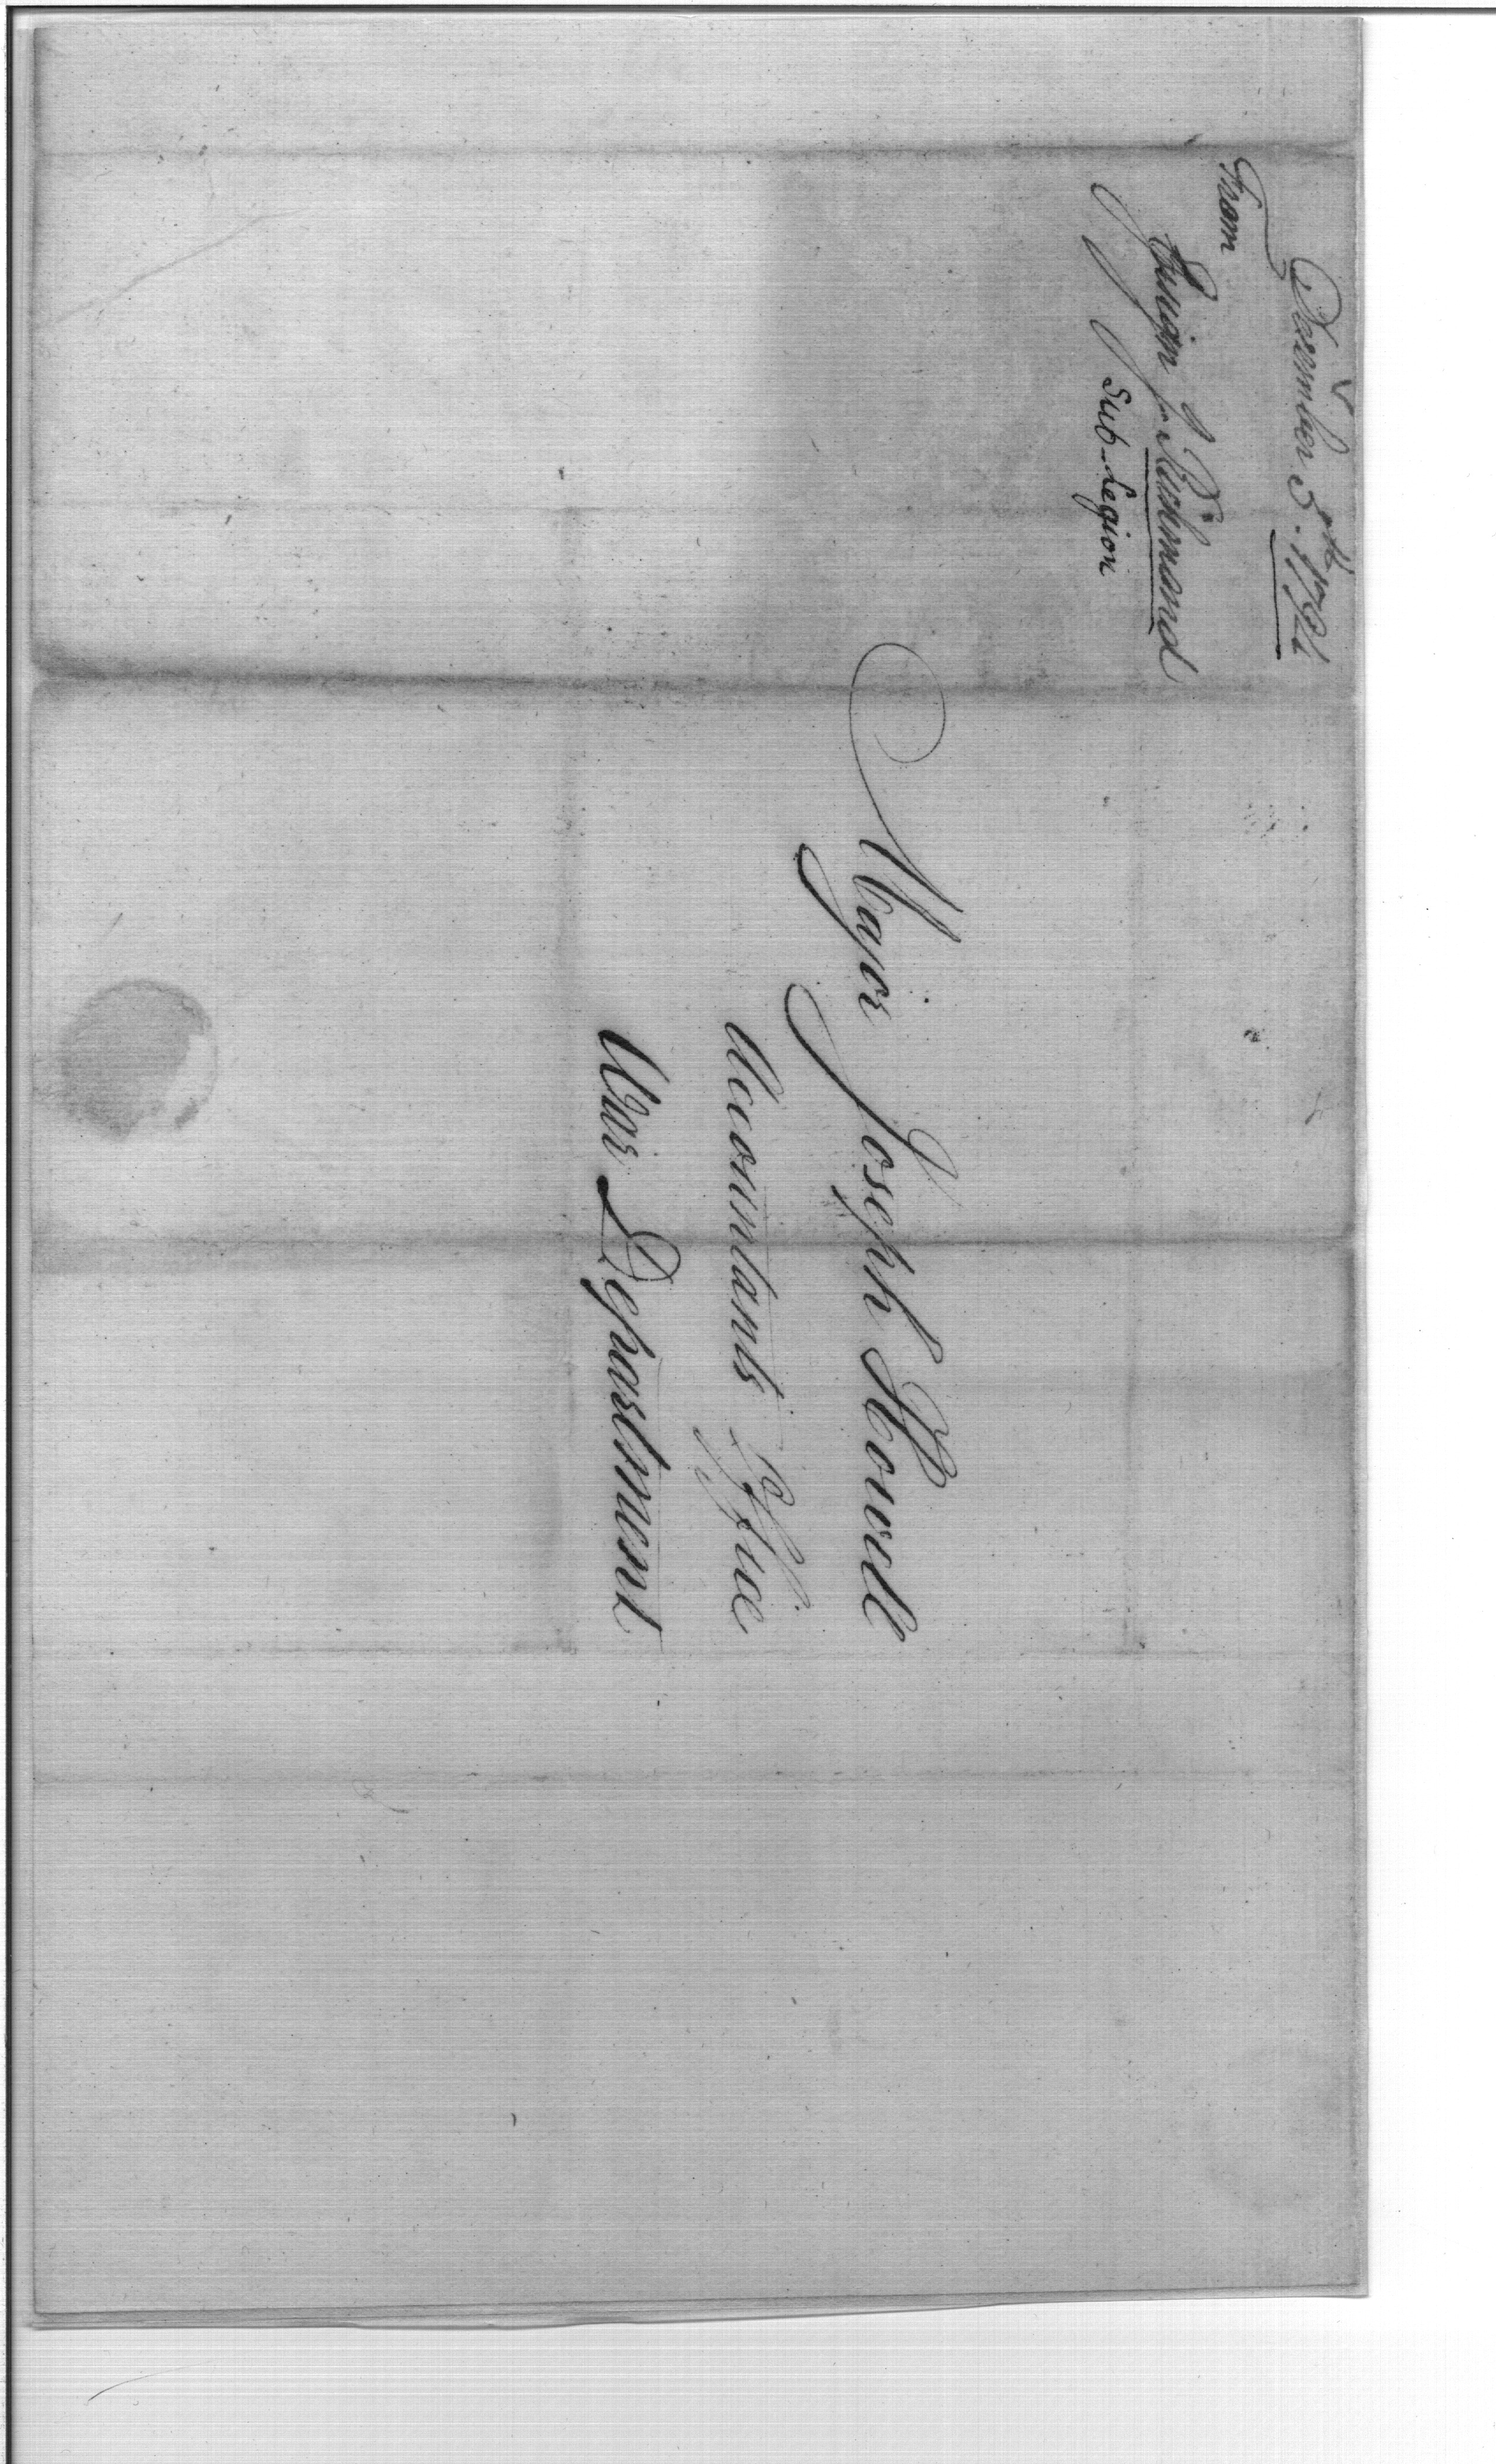 December 5th. 1794
From
Ensign Richmond
Sub-Legion
Major Joseph Howell
Accountants Office
War Department